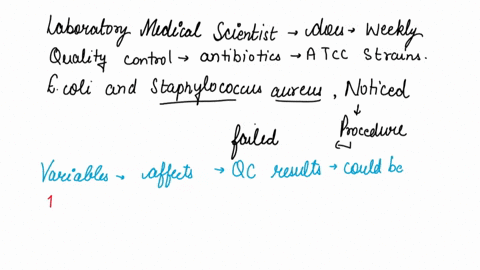 Laboratory Medical Scientist → does → Weekly
Quality control → antibiotics → ATCC Strains.
E.coli and Staphylococcus aureus, Noticed
↓
failed Procedure
↩
Variables → affects → QC results → could be
1